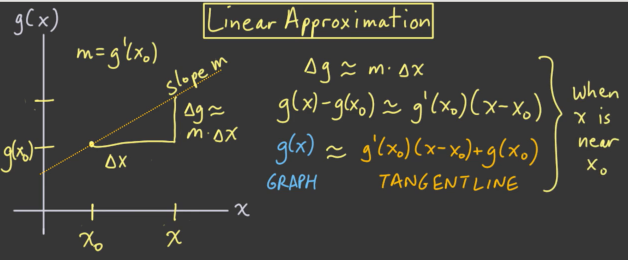 Linear Approximation
g(x)
m = g'(x₀)
slope m
Δg ≈
m·Δx
g(x₀)
Δx
x₀
x
x
Δg ≈ m·Δx
g(x)-g(x₀) ≈ g'(x₀)(x-x₀)
g(x) ≈ g'(x₀)(x-x₀)+g(x₀)
GRAPH
TANGENT LINE
when
x is
near
x₀